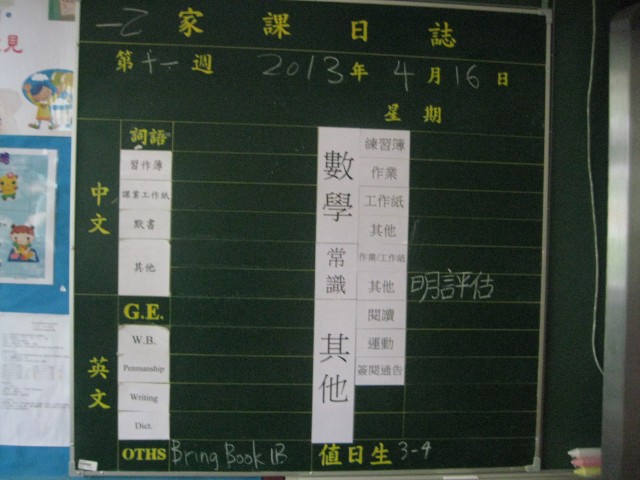 一乙 家課日誌
第十一週 2013年4月16日
星期
中文
詞語
習作簿
課業工作紙
默書
其他
英文
G.E.
W.B.
Penmanship
Writing
Dict.
OTHS Bring Book 1B
數學
練習簿
作業
工作紙
其他
常識
作業/工作紙
其他 明評估
其他
閱讀
運動
簽閱通告
值日生 3-4
見